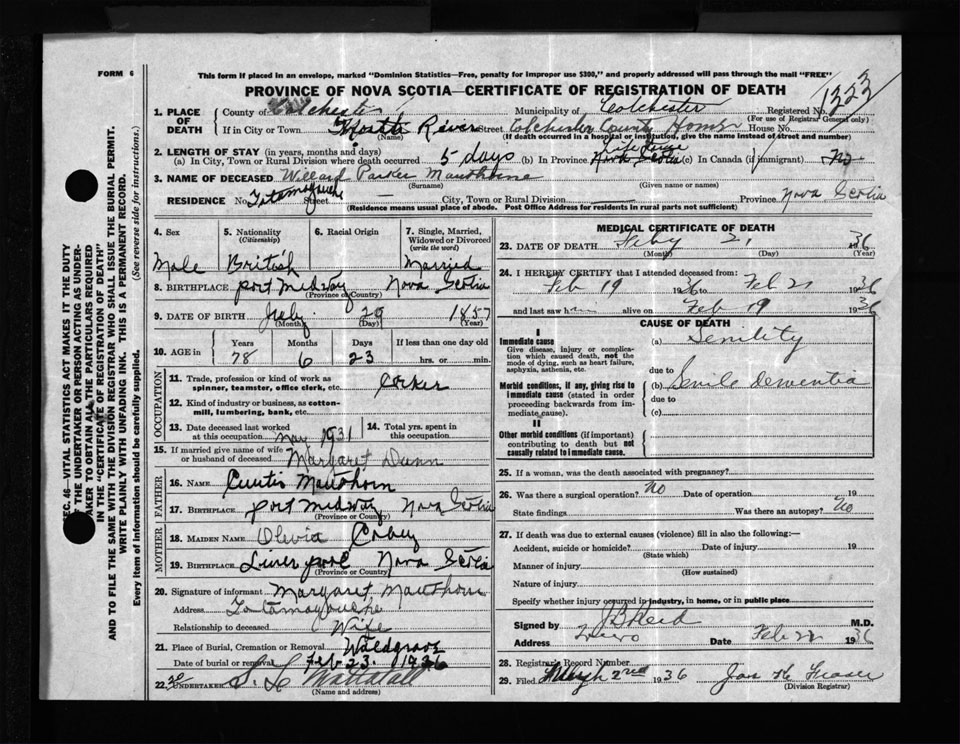 FORM 6
This form if placed in an envelope, marked "Dominion Statistics—Free, penalty for improper use $300," and properly addressed will pass through the mail "FREE"
PROVINCE OF NOVA SCOTIA—CERTIFICATE OF REGISTRATION OF DEATH
1. PLACE OF DEATH
County of Colchester Municipality of Colchester Registered No. 1323
(For use of Registrar General only)
If in City or Town North River Street Colchester County Home House No.
(Name) (If death occurred in a hospital or institution, give the name instead of street and number)
2. LENGTH OF STAY (in years, months and days)
(a) In City, Town or Rural Division where death occurred 5 days (b) In Province Life Time Nova Scotia (c) In Canada (if immigrant)
3. NAME OF DECEASED Willard Parker Mawthorne
(Surname) (Given name or names)
RESIDENCE No. Tatamagouche Street City, Town or Rural Division Province Nova Scotia
(Residence means usual place of abode. Post Office Address for residents in rural parts not sufficient)
4. Sex
Male
5. Nationality
(Citizenship)
British
6. Racial Origin
7. Single, Married, Widowed or Divorced
(write the word)
Married
8. BIRTHPLACE Port Medway Nova Scotia
(Province or Country)
9. DATE OF BIRTH July 29 1857
(Month) (Day) (Year)
10. AGE in
Years Months Days If less than one day old
78 6 23 hrs. or min.
OCCUPATION
11. Trade, profession or kind of work as spinner, teamster, office clerk, etc.
12. Kind of industry or business, as cotton-mill, lumbering, bank, etc.
13. Date deceased last worked at this occupation 1931
14. Total yrs. spent in this occupation
15. If married give name of wife or husband of deceased Margaret Dunn
FATHER
16. NAME Curtis Mawthorn
17. BIRTHPLACE Port Medway Nova Scotia
(Province or Country)
MOTHER
18. MAIDEN NAME Olevia
19. BIRTHPLACE Liverpool Nova Scotia
(Province or Country)
20. Signature of informant Margaret Mawthorn
Address Tatamagouche
Relationship to deceased Wife
21. Place of Burial, Cremation or Removal Waldgrave
Date of burial or removal Feb 23. 1936
22. UNDERTAKER S. L. Wattatall
(Name and address)
MEDICAL CERTIFICATE OF DEATH
23. DATE OF DEATH Feby 21 1936
(Month) (Day) (Year)
24. I HEREBY CERTIFY that I attended deceased from:
Feb 19 1936 to Feb 21 1936
and last saw h alive on Feb 19 1936
CAUSE OF DEATH
I
Immediate cause
Give disease, injury or complication which caused death, not the mode of dying, such as heart failure, asphyxia, asthenia, etc.
(a) Senility
due to
Morbid conditions, if any, giving rise to immediate cause (stated in order proceeding backwards from immediate cause).
(b) Senile Dementia
due to
(c)
II
Other morbid conditions (if important) contributing to death but not causally related to immediate cause.
25. If a woman, was the death associated with pregnancy?
26. Was there a surgical operation? No Date of operation 19
State findings Was there an autopsy? No
27. If death was due to external causes (violence) fill in also the following:—
Accident, suicide or homicide? Date of injury 19
(State which)
Manner of injury
(How sustained)
Nature of injury
Specify whether injury occurred in industry, in home, or in public place
Signed by M.D.
Address Truro Date Feb 22 1936
28. Registrar's Record Number
29. Filed March 2nd 1936 Jas K Fraser
(Division Registrar)
SEC. 46—VITAL STATISTICS ACT MAKES IT THE DUTY
OF THE UNDERTAKER OR PERSON ACTING AS UNDERTAKER TO OBTAIN ALL THE PARTICULARS REQUIRED
IN THE "CERTIFICATE OF REGISTRATION OF DEATH"
AND TO FILE THE SAME WITH THE DIVISION REGISTRAR WHO SHALL ISSUE THE BURIAL PERMIT.
WRITE PLAINLY WITH UNFADING INK. THIS IS A PERMANENT RECORD.
Every item of information should be carefully supplied. (See reverse side for instructions.)